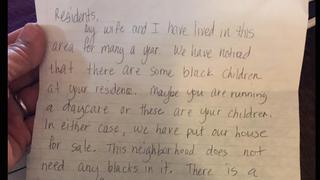 Residents,
My wife and I have lived in this
area for many a year. We have noticed
that there are some black children
at your residence. Maybe you are running
a daycare or these are your children.
In either case, we have put our house
for sale. This neighborhood does not
need any blacks in it. There is a